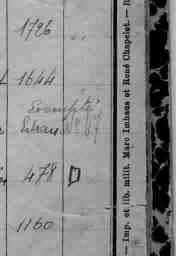 1726
1644
Exempté
478
1160
— Imp. et lib. milit. Marc Imhaus et René Chapelot. —